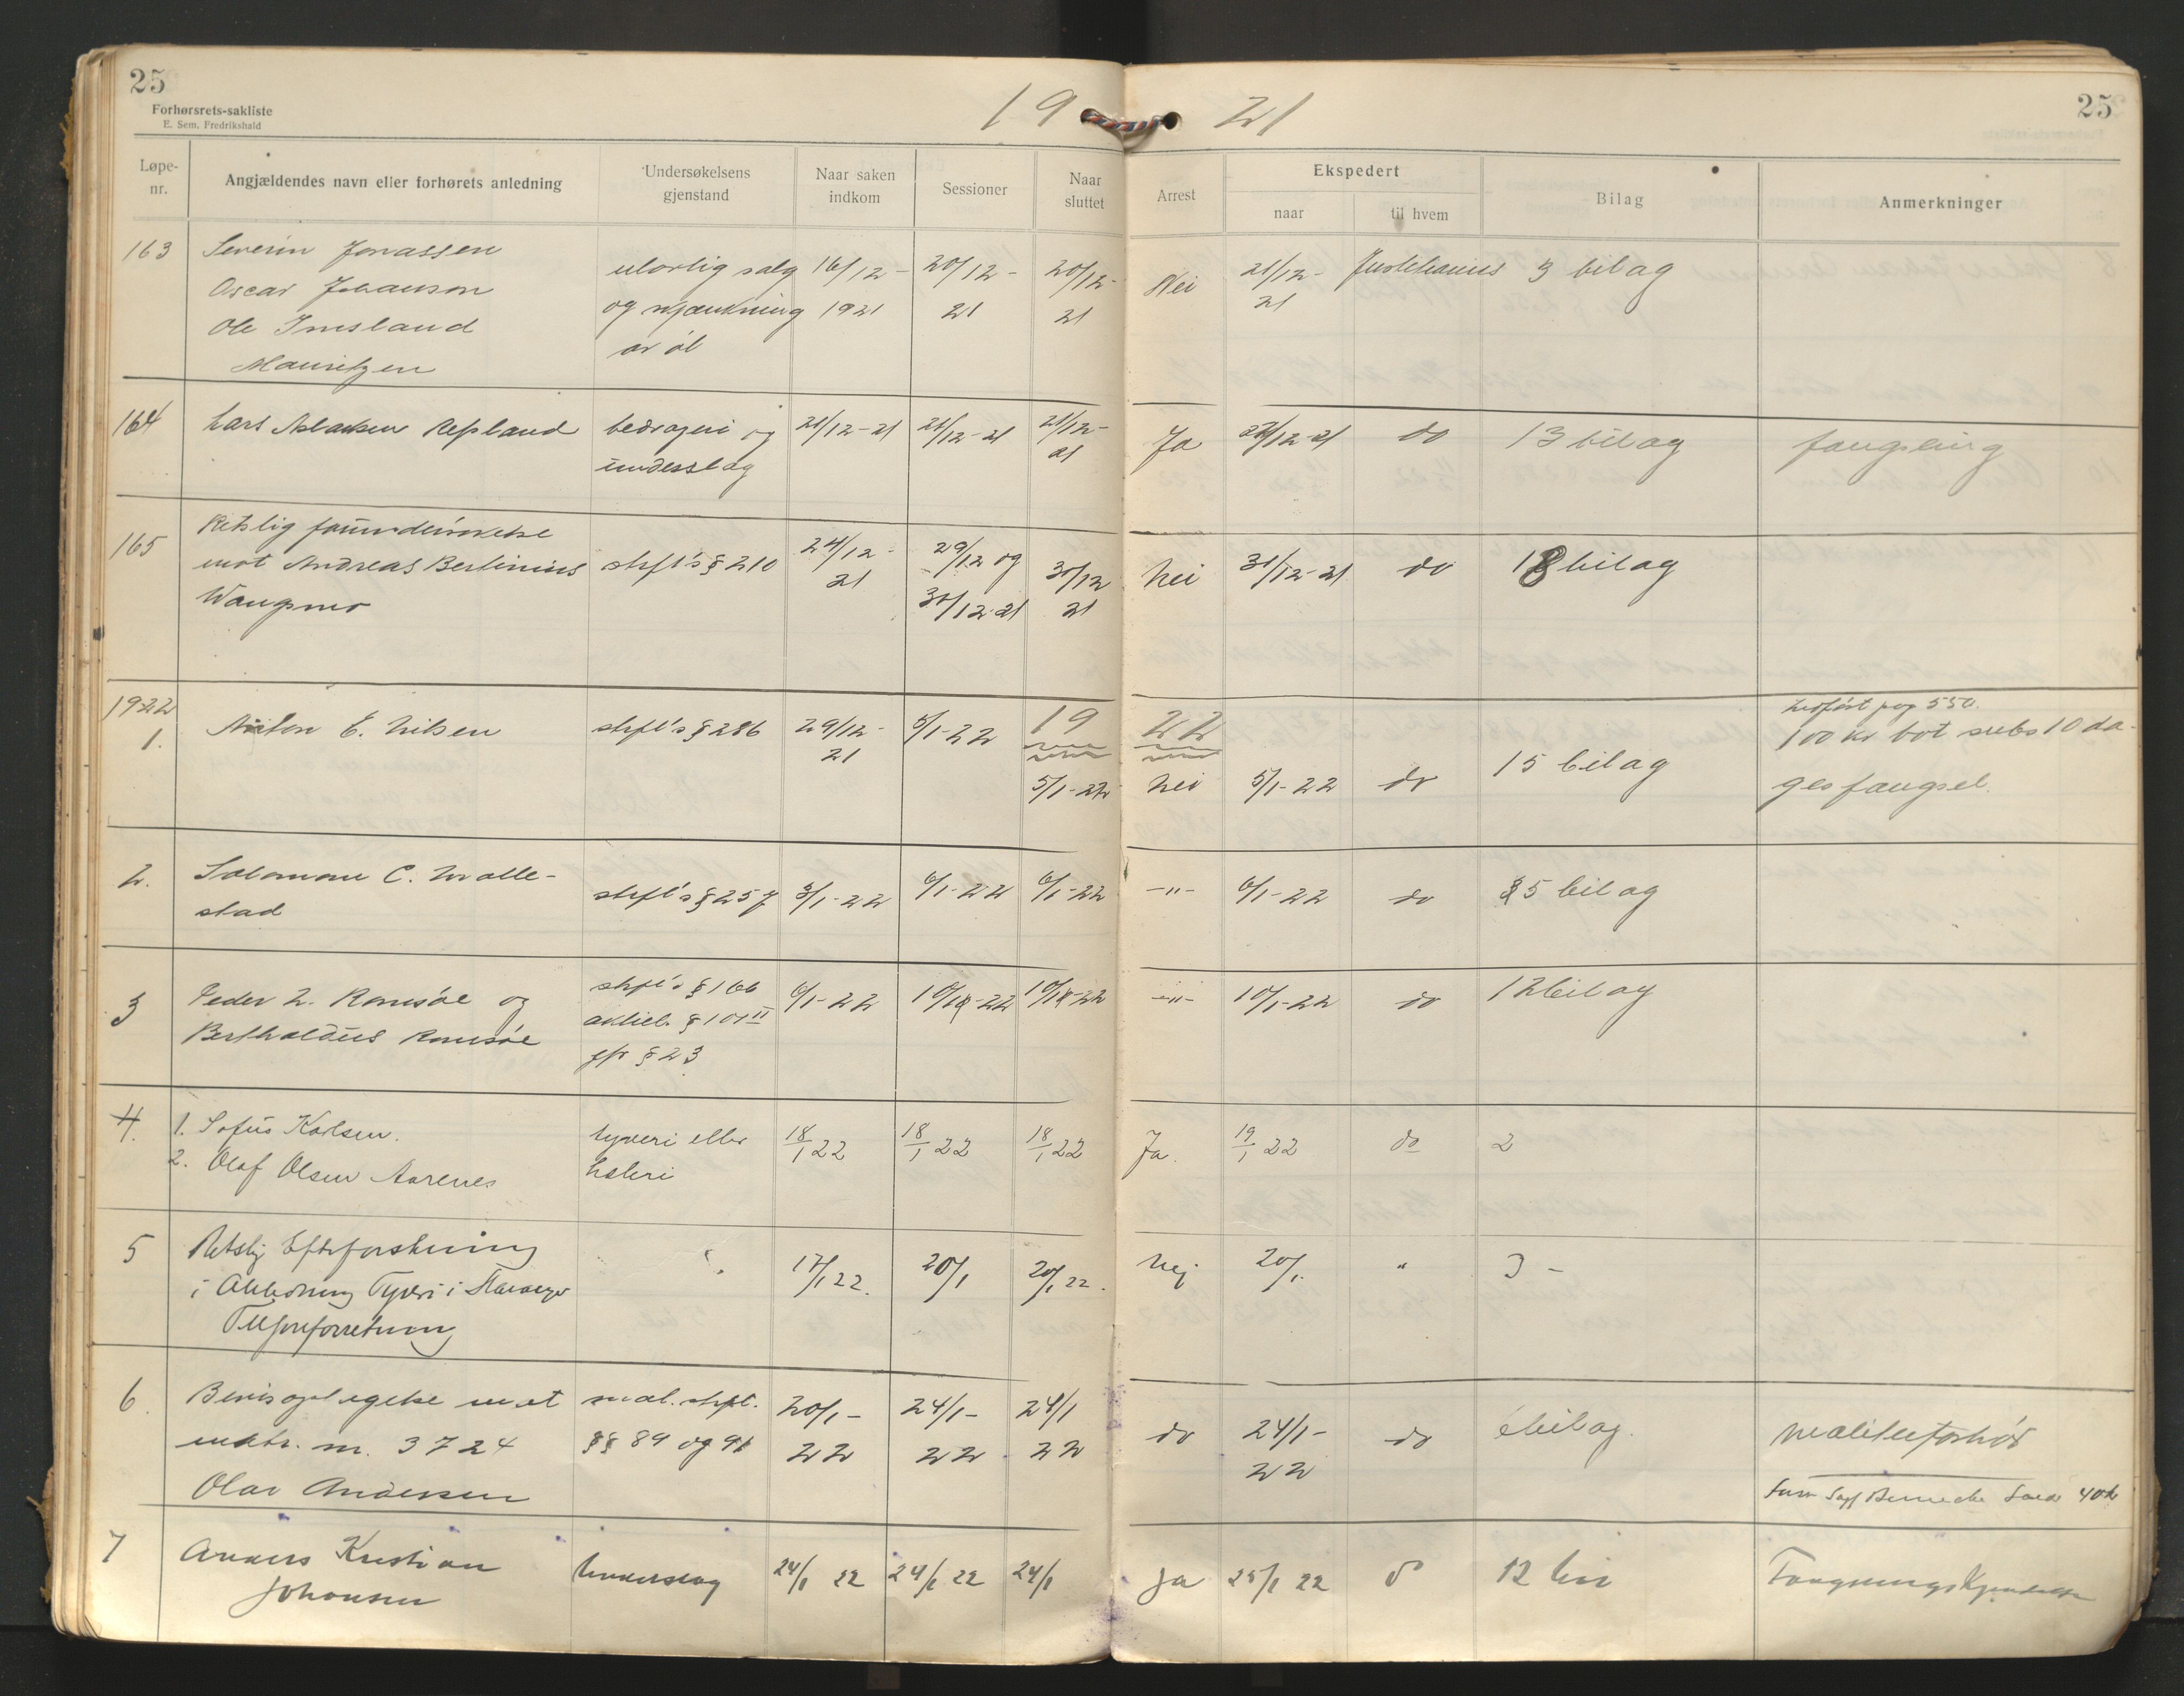 25
Forhørsrets-sakliste
E. Sem, Fredrikshald
19 21
25
Løpe-
nr.
Angjældendes navn eller forhørets anledning
Undersøkelsens
gjenstand
Naar saken
indkom
Sessioner
Naar
sluttet
Arrest
Ekspedert
naar
til hvem
Bilag
Anmerkninger
163
Severin Jonassen
Oscar Johanson
Ole Imsland
Mauritzen
ulovlig salg
og skjænkning
av øl
16/12-
1921
20/12-
21
20/12-
21
Nei
21/12-
21
3 bilag
164
Lars Aslaksen Refsland
bedrageri og
underslag
21/12-21
21/12-21
21/12-
21
Ja
22/12-21
do
13 bilag
fængsling
165
Retslig forundersøkelse
mot Andreas Bertinius
Wangsmo
strfl's § 210
24/12-
21
29/12 og
30/12-21
30/12
21
Nei
31/12-21
do
18 bilag
1922
1.
Anton E. Nilsen
strfl's § 286
29/12-
21
5/1-22
19 22
5/1-22
Nei
5/1-22
do
15 bilag
100 kr bot subs 10 da-
ges fængsel.
2.
Salomon C.
stad
strfl's § 257
3/1-22
6/1-22
6/1-22
-"-
6/1-22
do
5 bilag
3
Peder L. Ramsøe og
Bertholdus Ramsøe
strfl's § 166
aktiel. § 101 II
jfr § 23
6/1-22
10/1-22
10/1-22
-"-
10/1-22
do
12 bilag
4.
1. Sofus Karlsen.
2. Olaf Olsen Aarenes
tyveri eller
hæleri
18/1 22
18/1 22
18/1 22
Ja.
19/1 22
do
2
5
Retslig Efterforskning
i Anledning Tyveri i Stavanger
17/1 22.
20/1
20/1 22.
Nej
20/1.
"
3 -
6.
Bevisoptagelse mot
matr. nr. 3724
Olav Andersen
mil. strfl.
§§ 89 og 91
20/1-
22
24/1-
22
24/1
22
do
24/1-
22
do
bilag.
40 kr
7
Anders Kristian
Johansen
Underslag
24/1 22
24/1 22
24/1
Ja
25/1 22
do
12 bil
Fængslingskjendelse